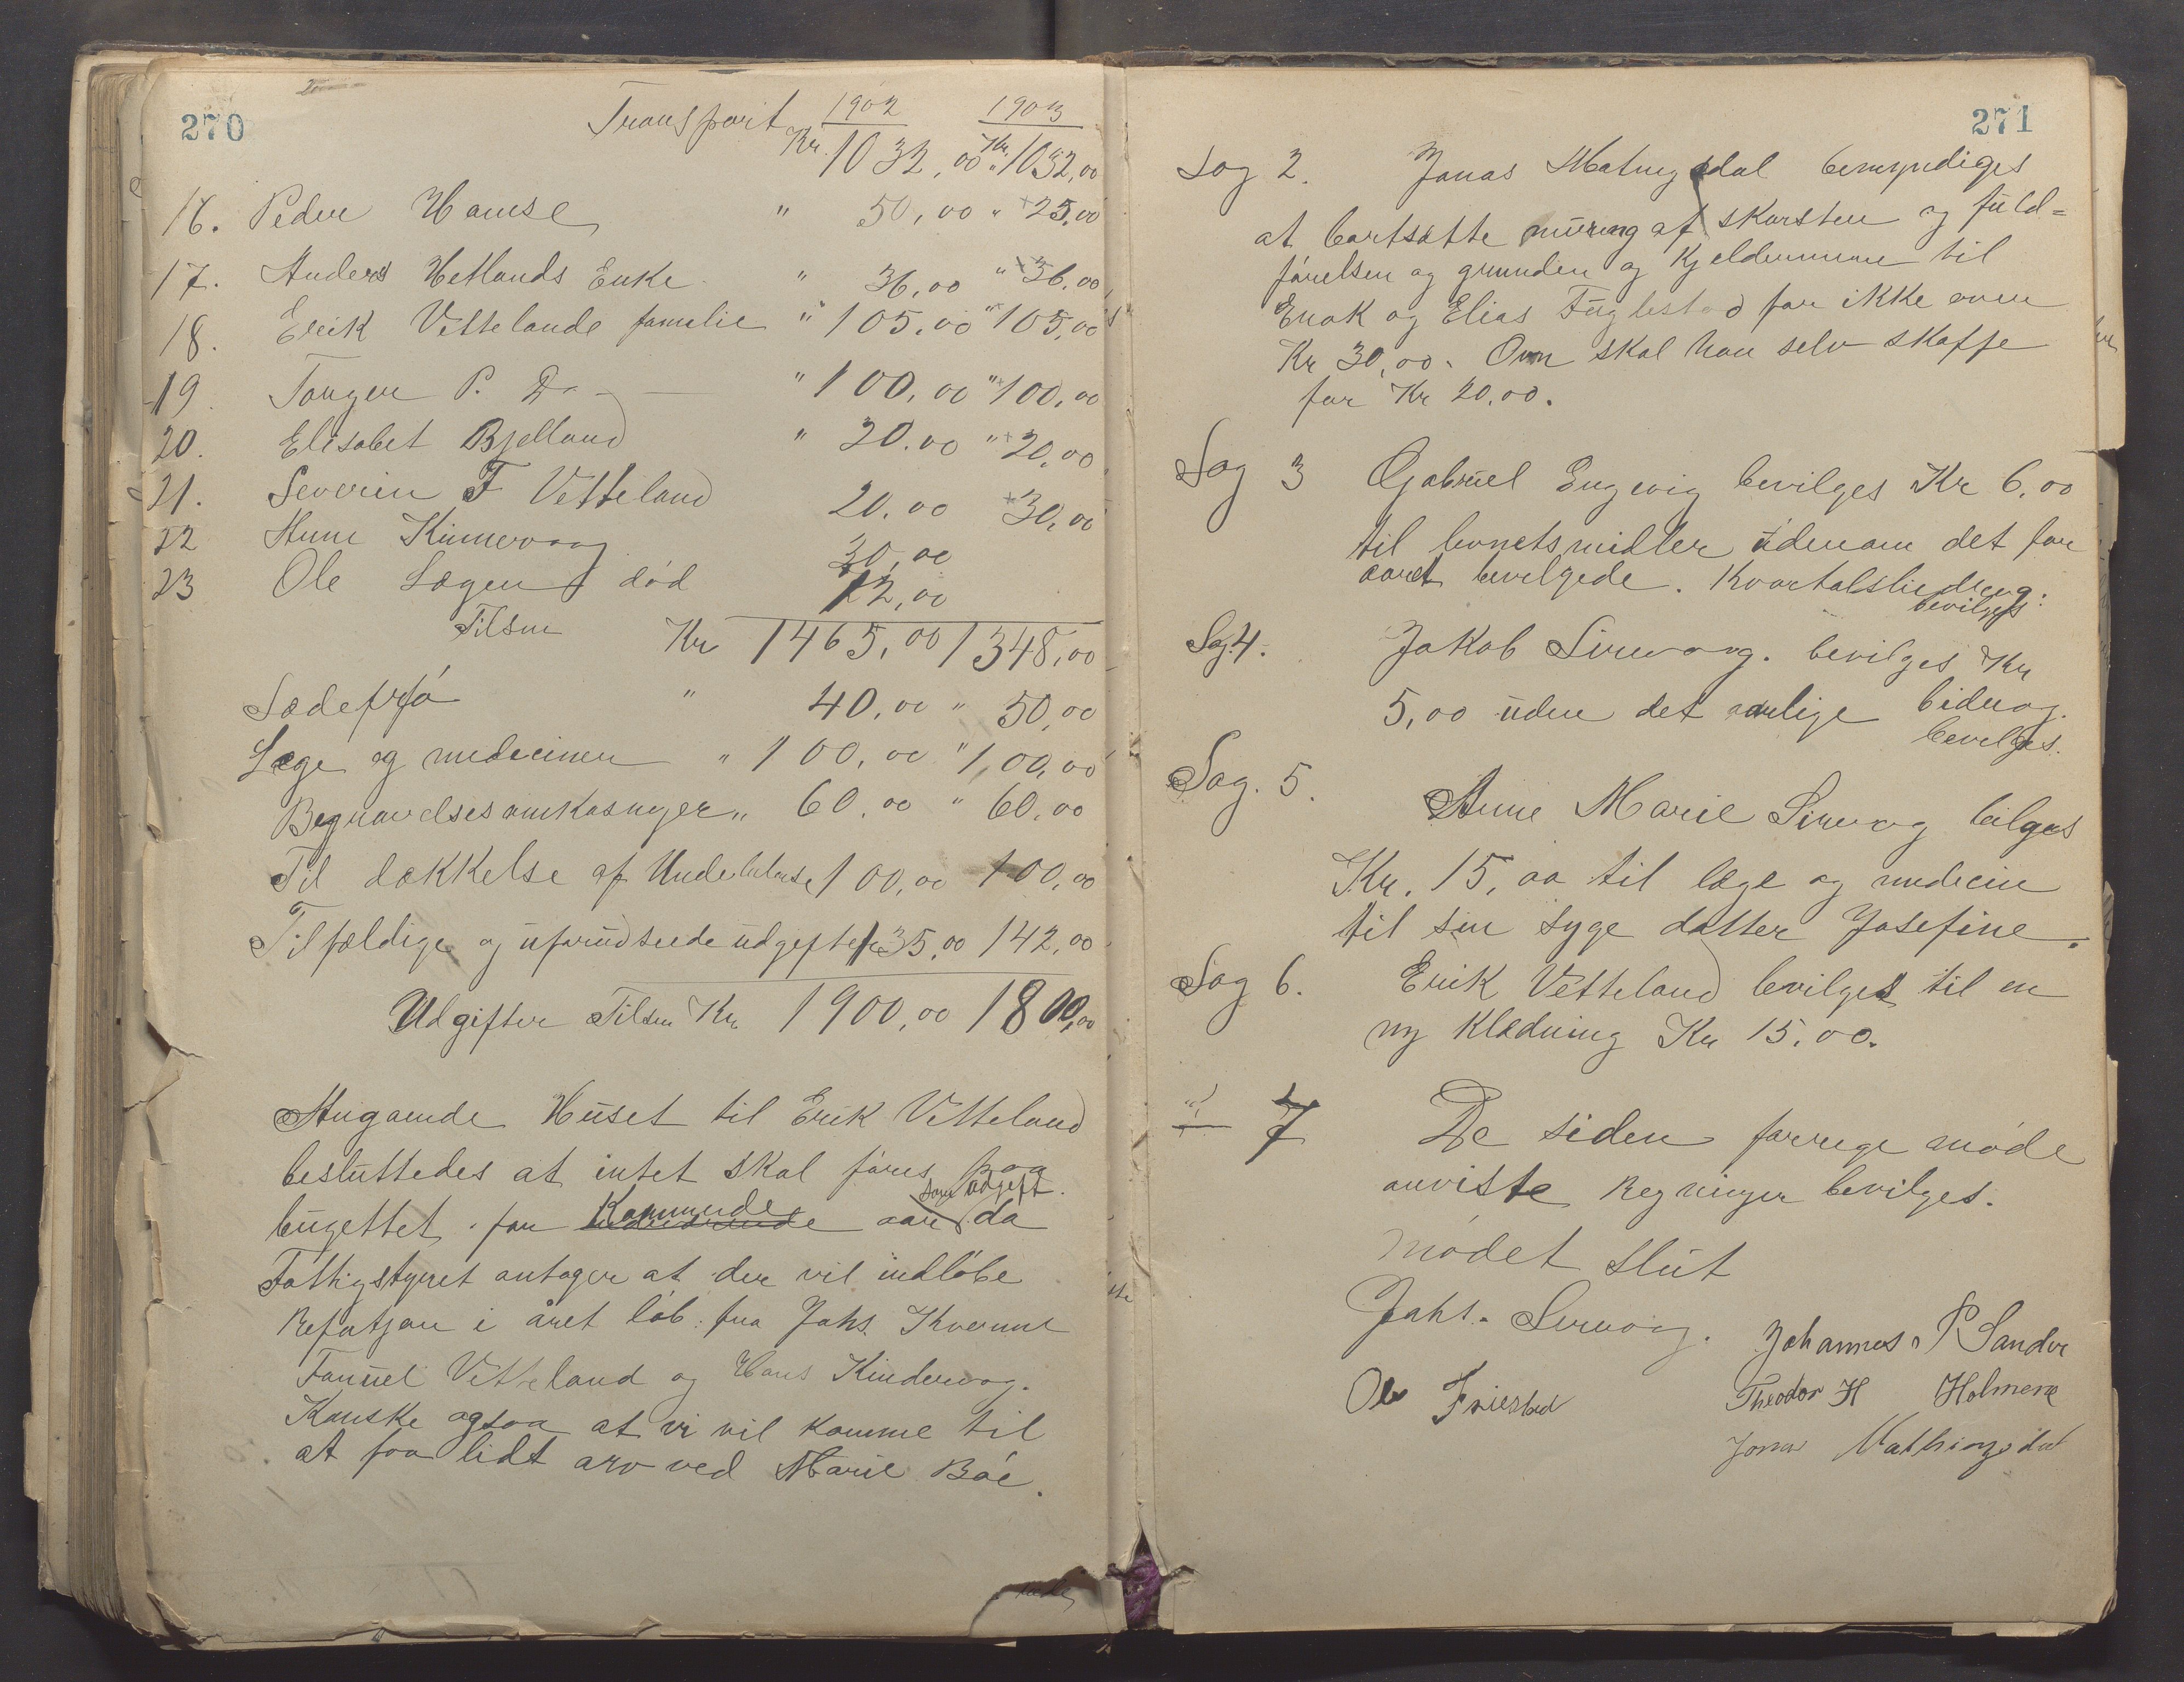 270
Transport 1902 1903
Kr. 1032,00 Kr. 1032,00
16. Peder Hamse " 50,00 " 25,00
17. Anders Hetlands Enke " 36,00 " 36,00
18. Erik Vettelands familie " 105,00 " 105,00
19. Tonger P. D. " 100,00 " 100,00
20. Elisabet Bjelland " 20.00 " 20,00
21. Severin F Vetteland 20.00 30,00
22 Anne Kinnervaag 30,00
23 Ole Lagen død 12,00
Tilsm Kr 1465,00 1348,00
Sædefrø " 40,00 " 50,00
Læge og medeciner " 100,00 " 100,00
Begravelsesomkosninger " 60.00 " 60.00
Til dækkelse af Underbalanse 100,00 100,00
Tilfældige og uforudseede udgifter 135,00 142,00
Udgifter Tilsm Kr 1900,00 1800,00
Angaaende Huset til Erik Vetteland
besluttedes at intet skal føres paa
bugettet for Kommende aar som udgift. da
Fattigstyret antager at der vil indløbe
Refutsjon i året løb: fra Johs. Kvemme
Tanuel Vetteland og Hans Kindervag.
Kanske ogsaa at vi vil komme til
at faa lidt arv ved Marie Bøe.
271
Sag 2. Jonas Matingsdal bemyndiges
at bortsætte muring af skorsten og fuld=
førelsen og grunden og Kjeldermure til
Enok og Elias Fuglestad for ikke over
Kr 30,00. Ovn skal han selv skaffe
for Kr 20.00.
Sag 3 Gabriel Engevig bevilges Kr 6,00
til levnetsmidler udenom det for
aaret bevilgede. Kvartalsbidrag:
bevilges
Sag.4. Jakob Sirevaag. bevilges Kr
5,00 uden det aarlige bidrag.
bevelges.
Sag. 5. Anne Marie Sirevag bilges
Kr. 15,00 til læge og medecin
til sin syge datter Josefine.
Sag 6. Erik Vetteland bevilges til en
ny Klædning Kr 15,00.
" 7 De siden forrige møde
anviste Regninger bevilges.
Mødet slut
Johs. Sirevaag. Johannes P Sandve
Ole Friestad Theodor H Holmene
Jonas Mathingsdal